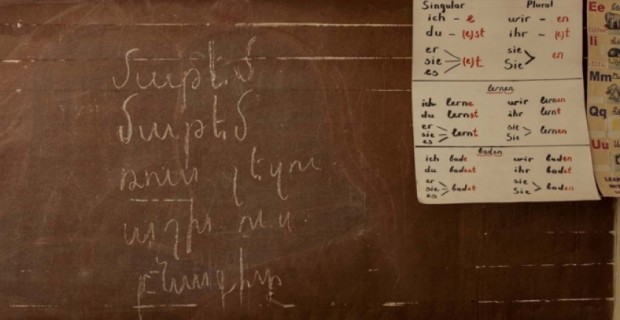 մաթեմ
մաթեմ
ռուս լեզու
Singular Plural
ich - e wir - en
du - (e)st ihr - (e)t
er sie
sie (e)t Sie en
es
lernen
ich lerne wir lernen
du lernst ihr lernt
er sie
sie lernt Sie lernen
es
baden
ich bade wir baden
du badest ihr badet
er sie
sie badet Sie baden
es
Ee
Ii
Mm
Qq
Uu